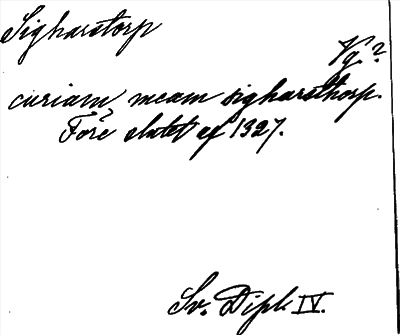 Sigharstorp
Vg?
curiam meam sigharsthorp.
Före slutet af 1327.
Sv. Dipl. IV.